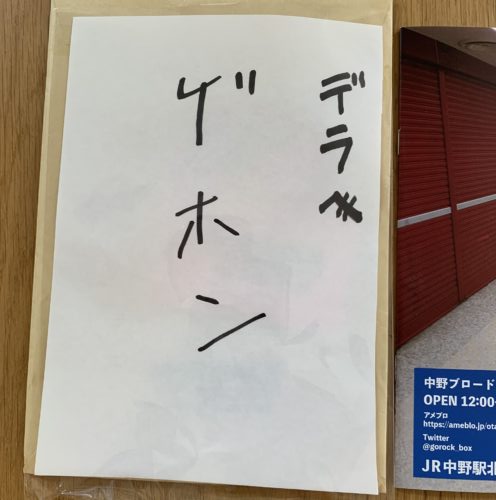 デラ
ゲホン
中野ブロード
OPEN 12:00-
アメブロ
https://ameblo.jp/ota
Twitter
@gorock_box
JR中野駅北